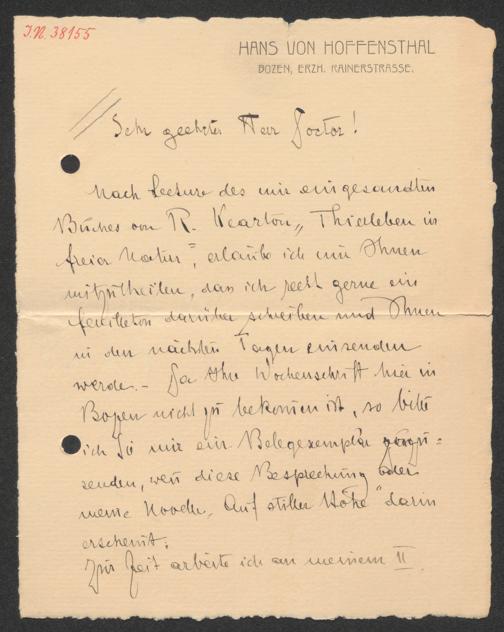 I.N. 38155
HANS VON HOFFENSTHAL
BOZEN, ERZH. RAINERSTRASSE.
Sehr geehrter Herr Doctor!
Nach Lecture des mir eingesandten
Buches von R. Kearton „Thierleben in
freier Natur", erlaube ich mir Ihnen
mitzutheilen, dass ich recht gerne ein
feuilleton darüber schreiben und Ihnen
in den nächsten Tagen einsenden
werde. – Da Ihre Wochenschrift hier in
Bozen nicht zu bekommen ist, so bitte
ich Sie mir ein Belegexemplar
senden, wenn diese Besprechung oder
meine Novelle „Auf stiller Höhe" darin
erscheint.
Zur Zeit arbeite ich an meinem II